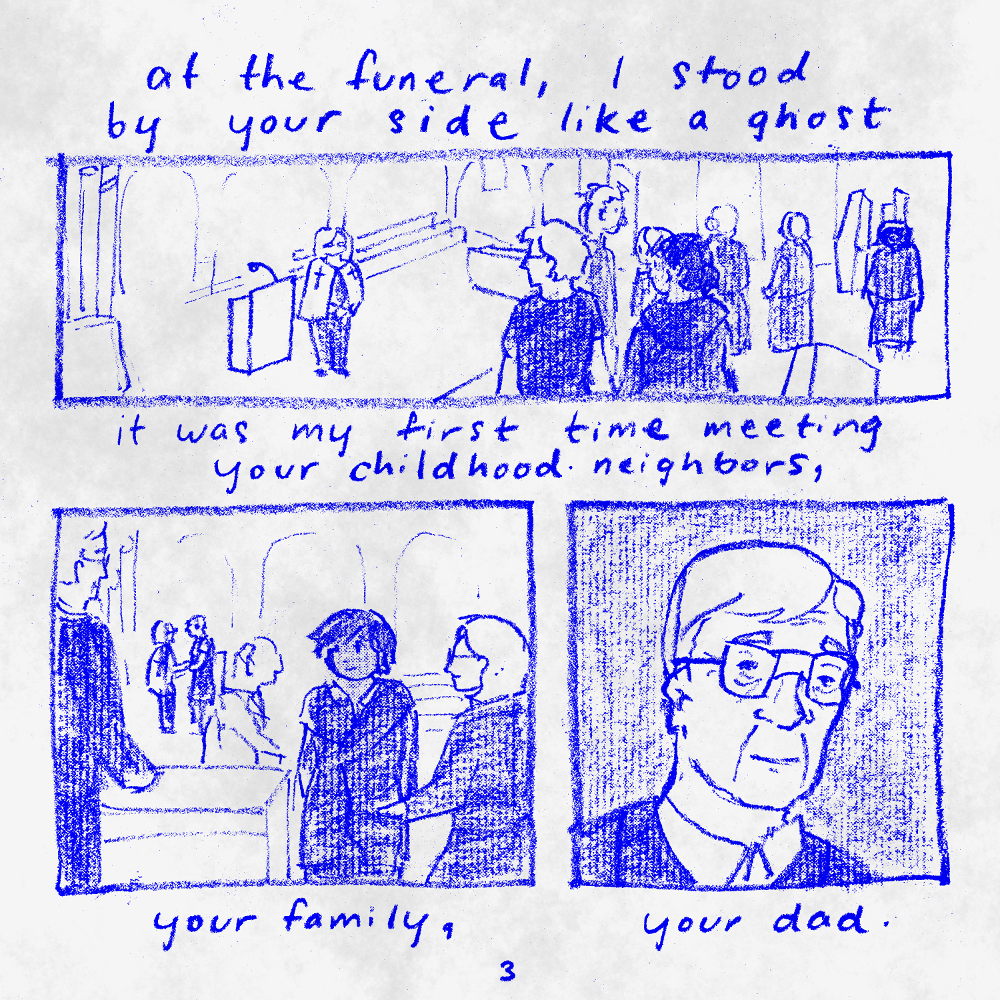 at the funeral, I stood
by your side like a ghost
it was my first time meeting
your childhood neighbors,
your family,
your dad.
3